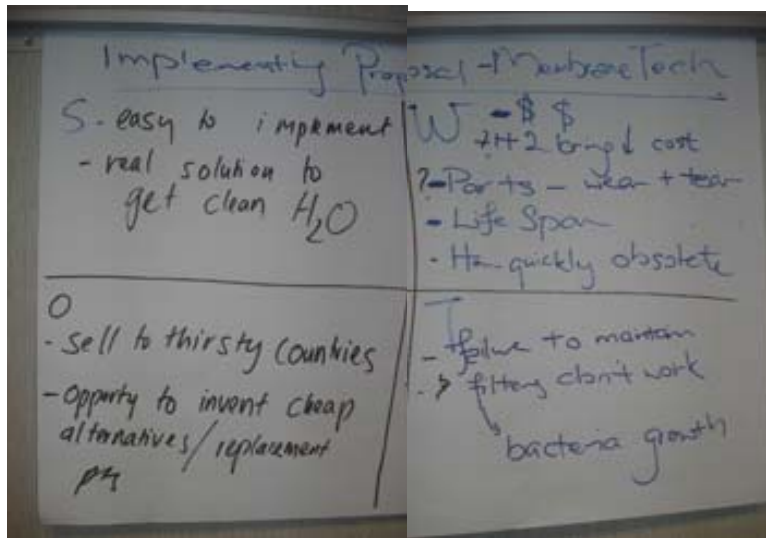 Implementing Proposal - Membrane Tech
S - easy to implement
- real solution to
get clean H2O
W - $ $
? H 2 bring ↓ cost
? - Parts - wear + tear
- Life Span
- H quickly obsolete
O
- Sell to thirsty Countries
- Opporty to invent cheap
alternatives/replacement
T
- failure to maintain
- filters don't work
bacteria growth